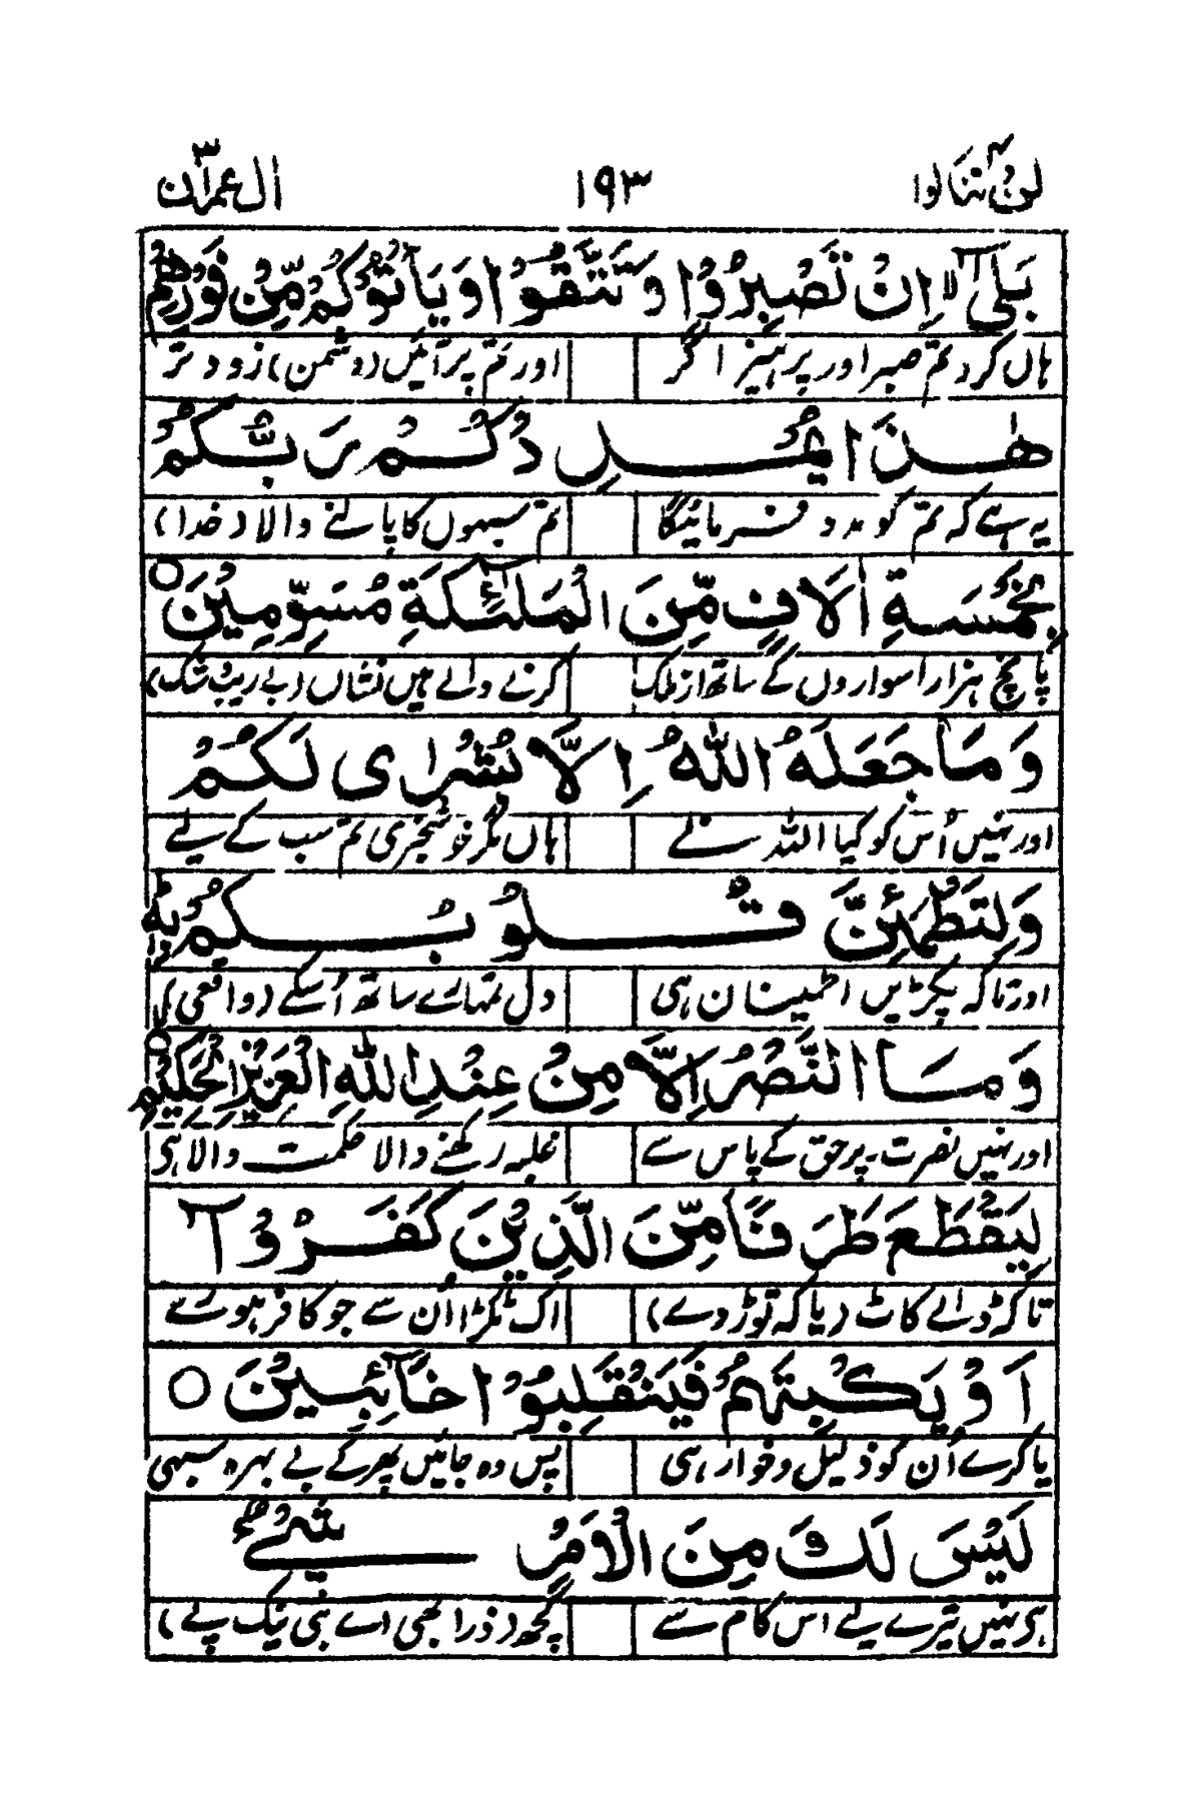 لن تنالوا ۴ ۱۹۳ اٰل عمرٰن ۳
بَلٰۤى ۙ اِنْ تَصْبِرُوْا وَ تَتَّقُوْا وَ یَاْتُوْكُمْ مِّنْ فَوْرِهِمْ
ہاں گر دتم صبر اور پرہیز اگر اور تم پر آئیں (دشمن) زود تر
هٰذَا یُمْدِدْكُمْ رَبُّكُمْ
یہ ہے کہ تم کو مدد فرمائیگا تم سبھوں کا پالنے والا (خدا)
بِخَمْسَةِ اٰلَافٍ مِّنَ الْمَلٰٓئِكَةِ مُسَوِّمِیْنَ ○
پانچ ہزار اسواروں کے ساتھ از ملک کرنے والے ہیں نشاں (بے ریب شک)
وَ مَا جَعَلَهُ اللّٰهُ اِلَّا بُشْرٰی لَكُمْ
اور نہیں اُس کو کیا اللہ نے ہاں مگر خوشخبری تم سب کے لیے
وَ لِتَطْمَئِنَّ قُلُوْبُكُمْ بِهٖ ؕ
اور تاکہ پکڑیں اطمینان ہی دل تمہارے ساتھ اُسکے (واقعی)
وَ مَا النَّصْرُ اِلَّا مِنْ عِنْدِ اللّٰهِ الْعَزِیْزِ الْحَكِیْمِ ○
اور نہیں نصرت۔ پر حق کے پاس سے غلبہ رکھنے والا حکمت والا ہی
لِیَقْطَعَ طَرَفًا مِّنَ الَّذِیْنَ كَفَرُوْۤا
تاکہ ڈالے کاٹ (یا کہ توڑ دے) اک ٹکڑا اُن سے جو کافر ہوئے
اَوْ یَكْبِتَهُمْ فَیَنْقَلِبُوْا خَآئِبِیْنَ ○
یا کرے اُن کو ذلیل و خوار ہی پس وہ جائیں پھر کے بے بہرہ سبھی
لَیْسَ لَكَ مِنَ الْاَمْرِ شَیْءٌ
ہی نہیں تیرے لیے اس کام سے کچھ (ذرا بھی اے نبی نیک پے)